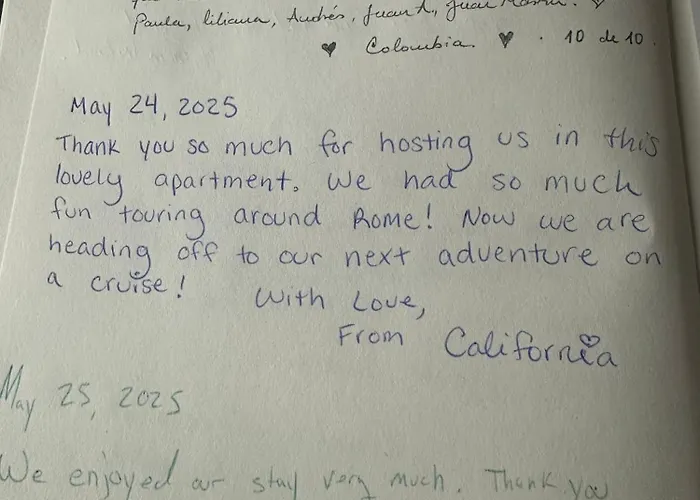 Paula, liliana, Andrés, Juan A, Juan
♥ Colombia. ♥ . 10 de 10.
May 24, 2025
Thank you so much for hosting us in this
lovely apartment. We had so much
fun touring around Rome! Now we are
heading off to our next adventure on
a cruise!
With Love,
From California
May 25, 2025
We enjoyed our stay very much. Thank you